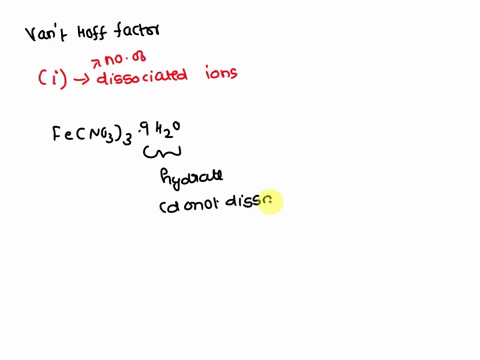 Van't Hoff factor
↗ no. of
(i) → dissociated ions
Fe(NO3)3 .9 H2O
hydrate
(do not disso